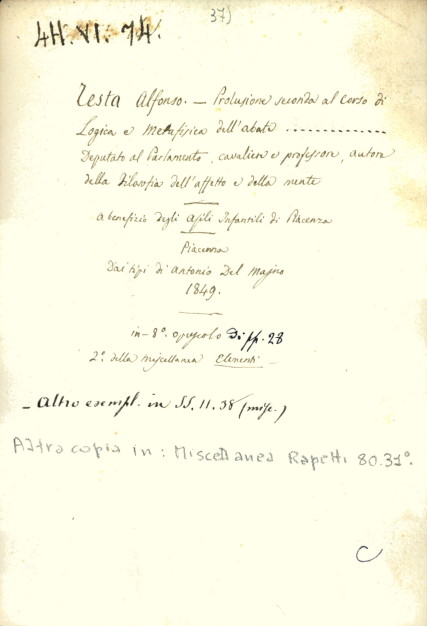 37)
4H. VI. 74.
Testa Alfonso. — Prolusione seconda al Corso di
Logica e Metafisica dell'abate .............
Deputato al Parlamento, cavaliere e professore, autore
della Filosofia dell'affetto e della mente
a beneficio degli Asili Infantili di Piacenza
Piacenza
Dai tipi di Antonio Del Majno
1849.
in-8° opuscolo Di pp. 28
2° della miscellanea Elementi
- Altro esempl. in SS. 11. 38 (misc.)
Altra copia in: Miscellanea Rapetti 80.31°.
C